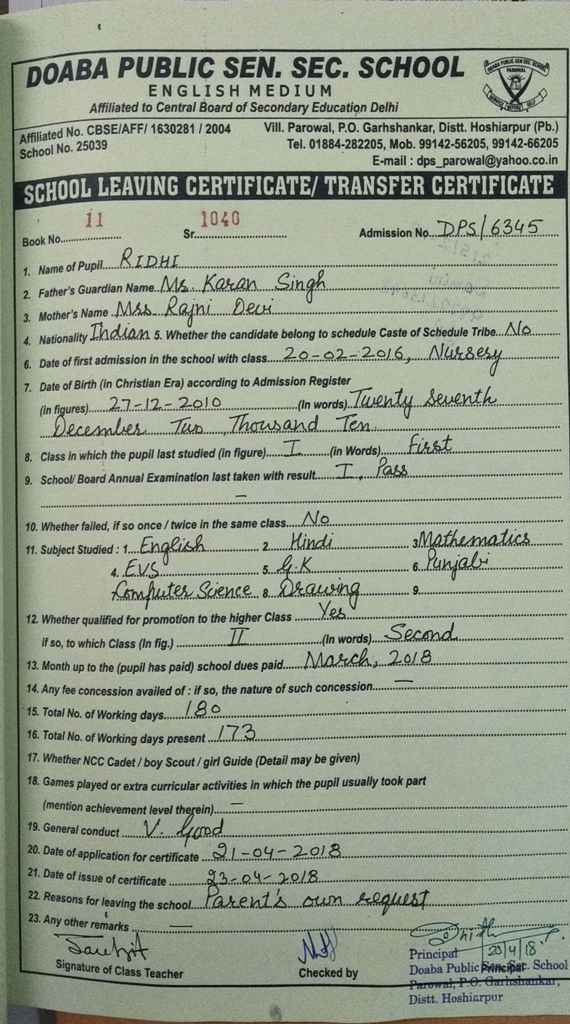 DOABA PUBLIC SEN. SEC. SCHOOL
ENGLISH MEDIUM
Affiliated to Central Board of Secondary Education Delhi
Affiliated No. CBSE/AFF/ 1630281 / 2004
School No. 25039
Vill. Parowal, P.O. Garhshankar, Distt. Hoshiarpur (Pb.)
Tel. 01884-282205, Mob. 99142-56205, 99142-66205
E-mail : dps_parowal@yahoo.co.in
SCHOOL LEAVING CERTIFICATE/ TRANSFER CERTIFICATE
Book No. 11 Sr. 1040 Admission No. DPS/6345
1. Name of Pupil RIDHI
2. Father's Guardian Name Mr. Karan Singh
3. Mother's Name Mrs. Rajni Devi
4. Nationality Indian 5. Whether the candidate belong to schedule Caste of Schedule Tribe No
6. Date of first admission in the school with class 20-02-2016, Nursery
7. Date of Birth (in Christian Era) according to Admission Register
(in figures) 27-12-2010 (In words) Twenty Seventh
December Two Thousand Ten
8. Class in which the pupil last studied (in figure) I (in Words) First
9. School/ Board Annual Examination last taken with result I, Pass
–
10. Whether failed, if so once / twice in the same class No
11. Subject Studied : 1 English 2 Hindi 3 Mathematics
4. EVS 5. G.K 6. Punjabi
Computer Science 8. Drawing 9.
12. Whether qualified for promotion to the higher Class Yes
if so, to which Class (In fig.) II (In words) Second
13. Month up to the (pupil has paid) school dues paid March, 2018
14. Any fee concession availed of : if so, the nature of such concession –
15. Total No. of Working days 180
16. Total No. of Working days present 173
17. Whether NCC Cadet / boy Scout / girl Guide (Detail may be given)
18. Games played or extra curricular activities in which the pupil usually took part
(mention achievement level therein) –
19. General conduct V. Good
20. Date of application for certificate 21-04-2018
21. Date of issue of certificate 23-04-2018
22. Reasons for leaving the school Parent's own request
23. Any other remarks –
Signature of Class Teacher Checked by Principal
Principal
Doaba Public Sen. Sec. School
Parowal, P.O. Garhshankar,
Distt. Hoshiarpur